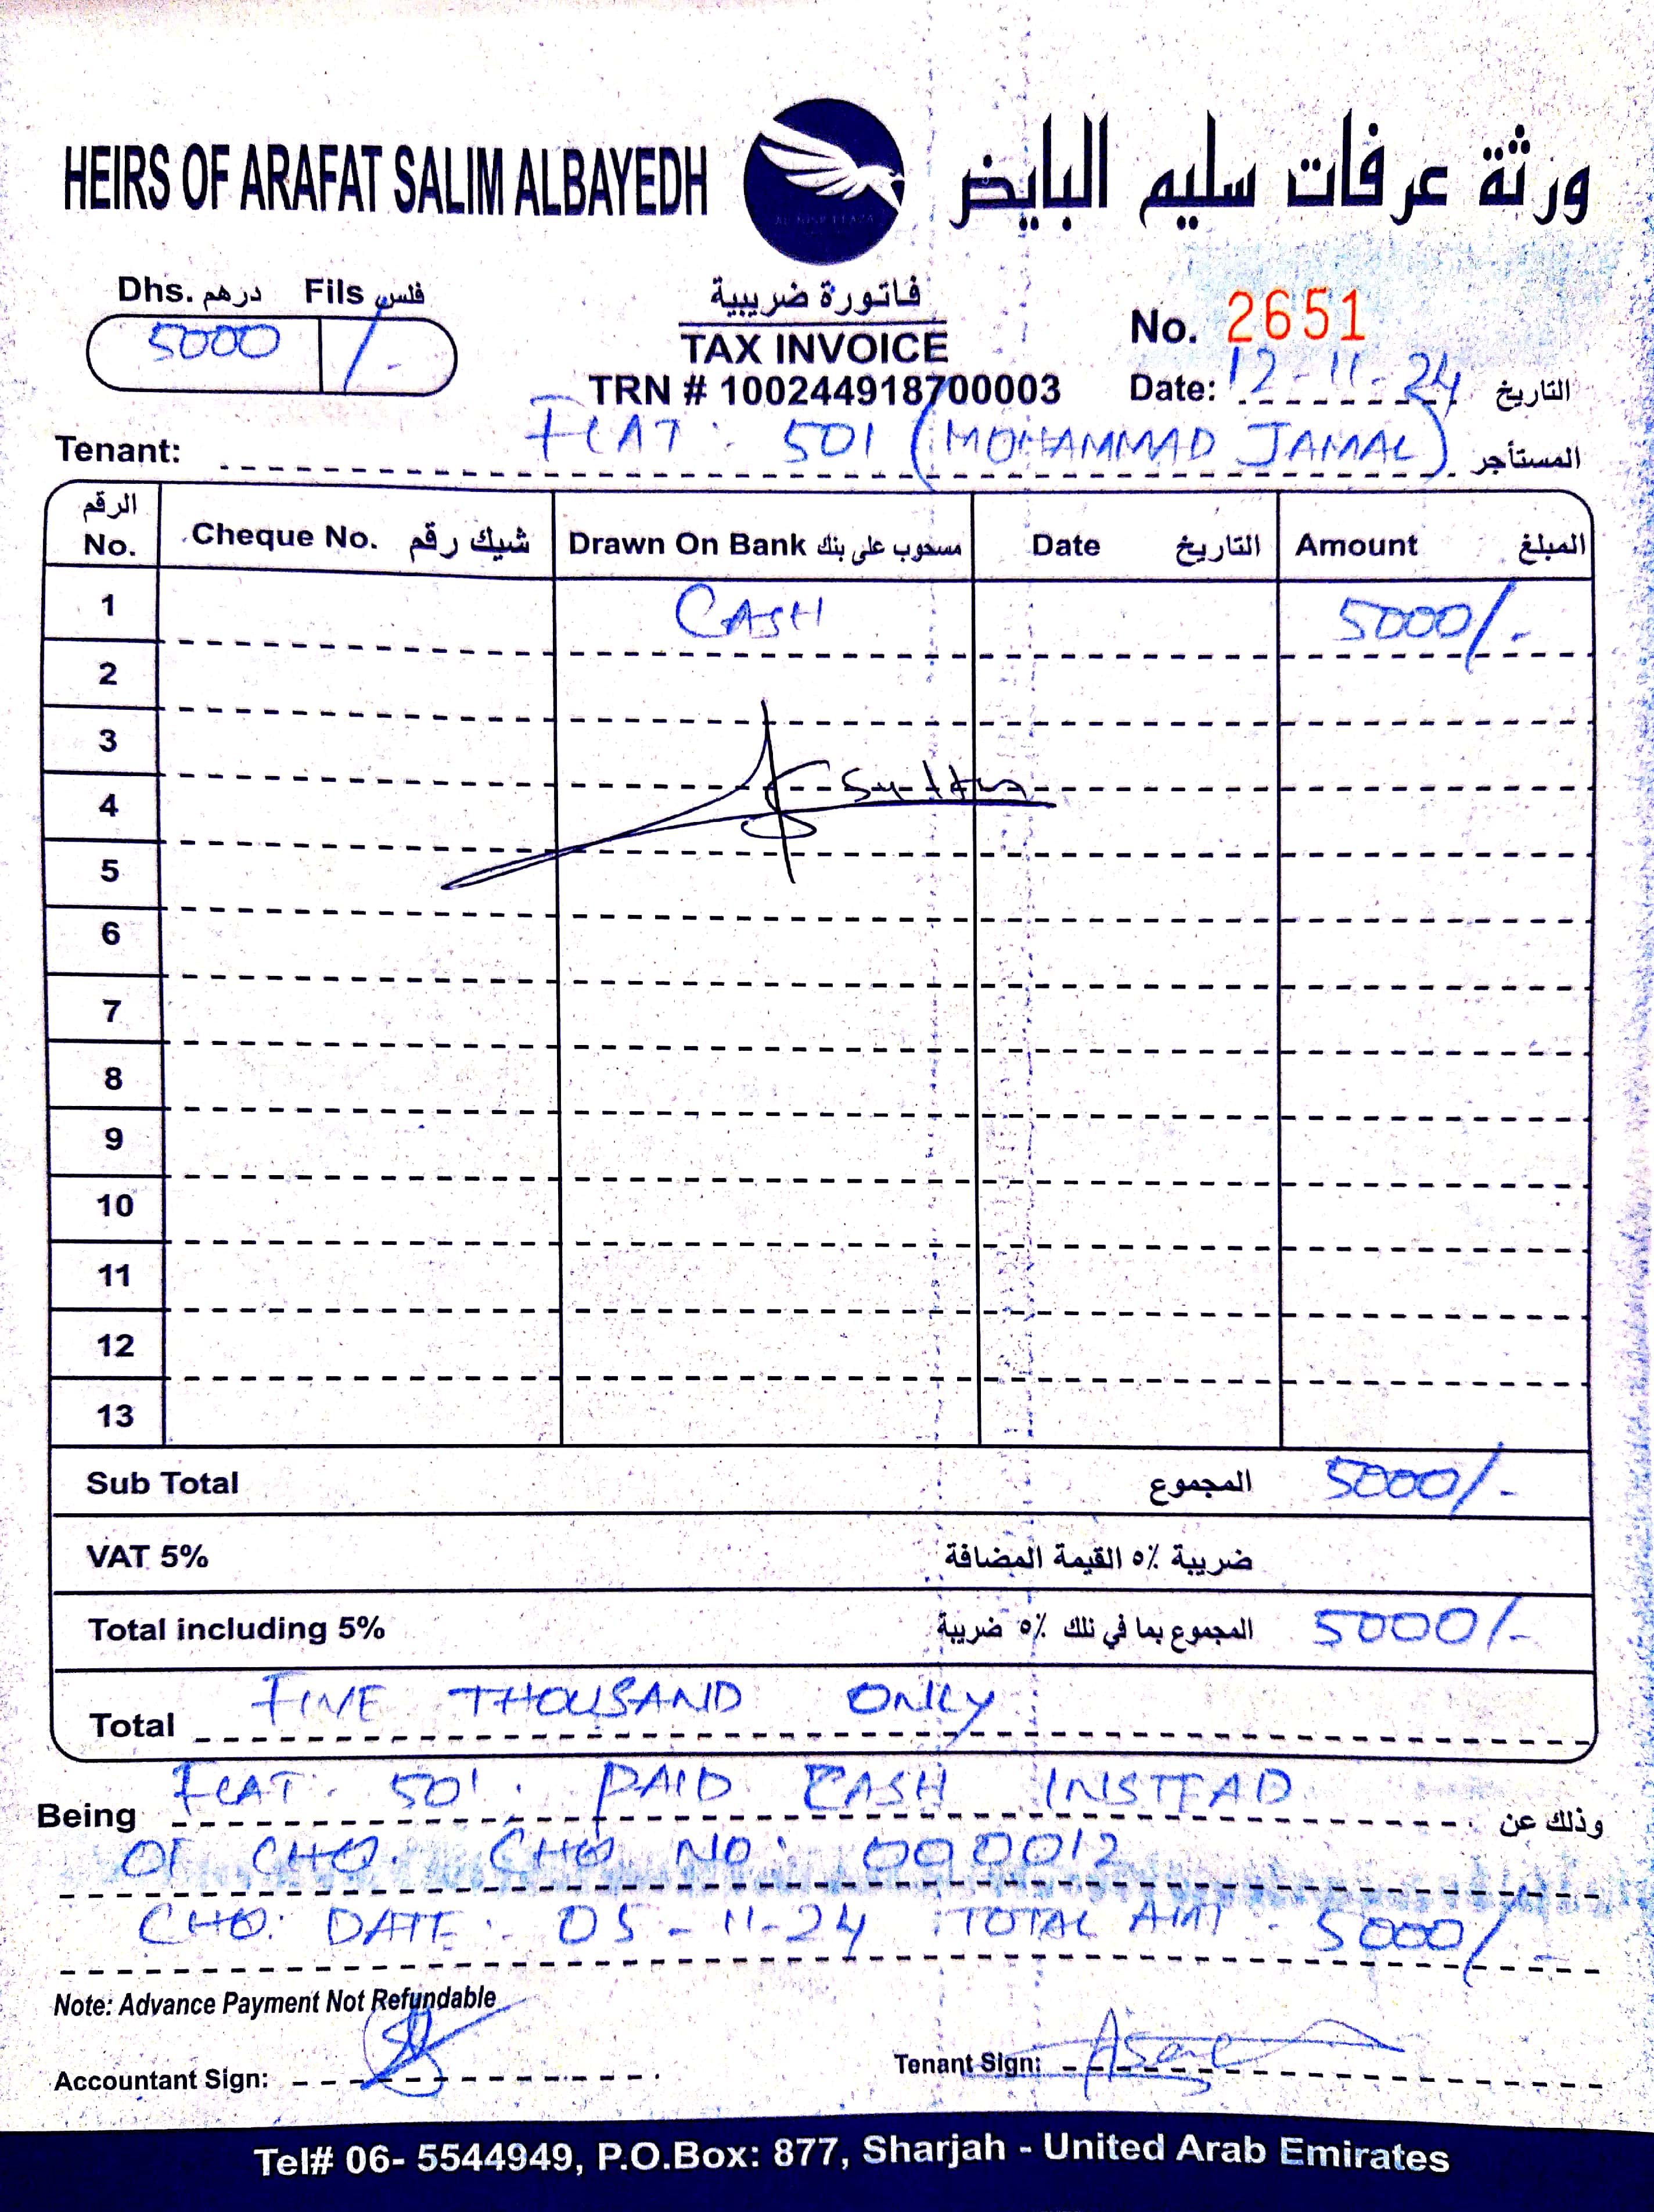 HEIRS OF ARAFAT SALIM ALBAYEDH
ورثة عرفات سليم البايض
Dhs. درهم Fils فلس
5000 /-
فاتورة ضريبية
TAX INVOICE
TRN # 100244918700003
No. 2651
Date: 12-11-24 التاريخ
Tenant: FLAT: 501 (MOHAMMAD JAMAL) المستأجر
الرقم No. Cheque No. شيك رقم Drawn On Bank مسحوب على بنك Date التاريخ Amount المبلغ
1 CASH 5000/-
2
3
4
5
6
7
8
9
10
11
12
13
Sub Total المجموع 5000/-
VAT 5% ضريبة ٥٪ القيمة المضافة
Total including 5% المجموع بما في ذلك ٥٪ ضريبة 5000/-
Total FIVE THOUSAND ONLY
Being FLAT: 501. PAID CASH INSTEAD وذلك عن
OF CHQ. CHQ NO: 000012
CHQ: DATE: 05-11-24 TOTAL AMT. 5000/-
Note: Advance Payment Not Refundable
Accountant Sign:
Tenant Sign:
Tel# 06- 5544949, P.O.Box: 877, Sharjah - United Arab Emirates